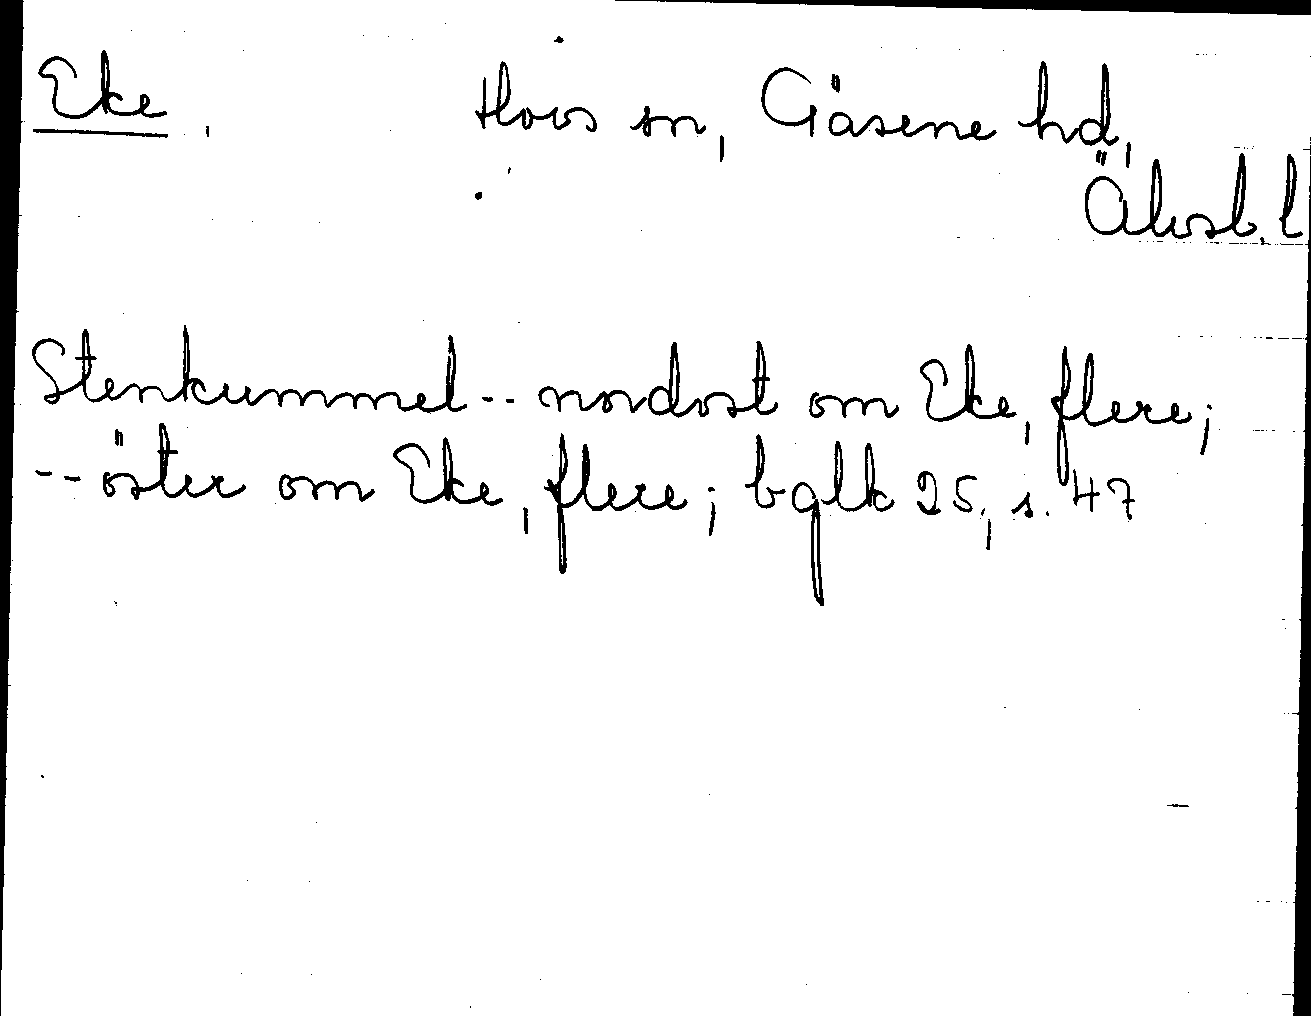 Eke. Hovs sn, Gäsene hd,
Älvsb. l
Stenkummel -- nordost om Eke, flere;
-- öster om Eke, flere; bglk 25, s. 47